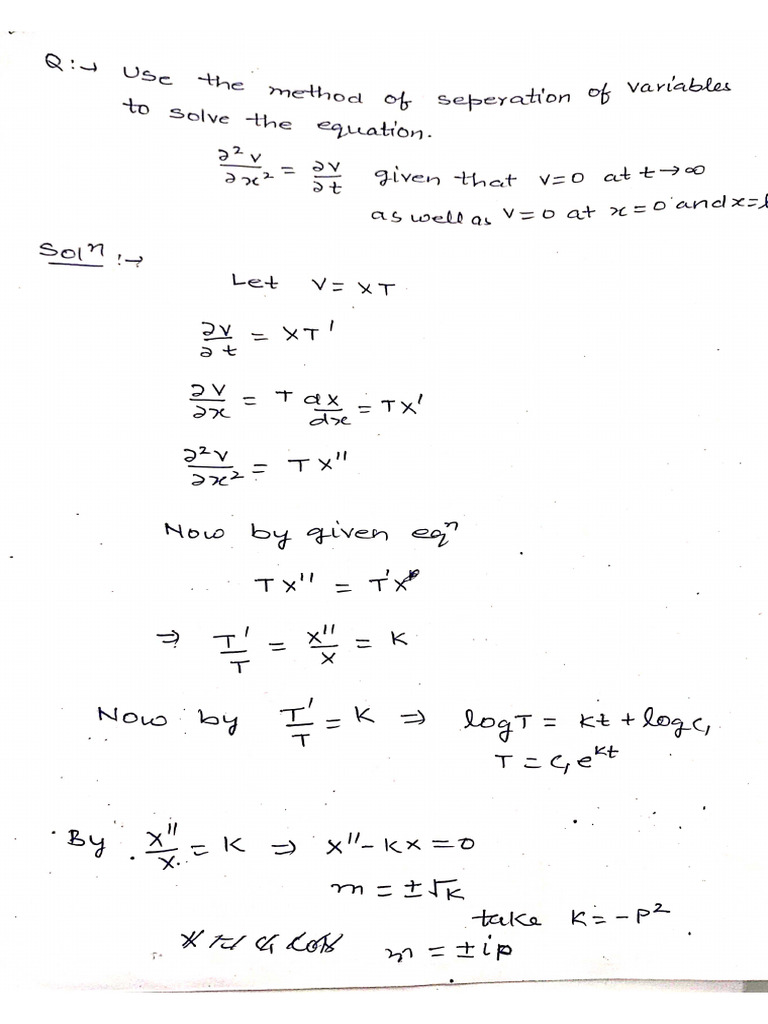 Q:→ Use the method of seperation of variables
to solve the equation.
∂²v/∂x² = ∂v/∂t given that v=0 at t→∞
as well as v=0 at x=0 and x=l
Solⁿ :→
Let V = XT
∂v/∂t = XT'
∂v/∂x = T dx/dx = TX'
∂²v/∂x² = TX''
Now by given eqⁿ
TX'' = T'X
⇒ T'/T = X''/X = K
Now by T'/T = K ⇒ log T = kt + log c₁
T = c₁e^kt
By X''/X = K ⇒ X'' - KX = 0
m = ±√K
take K = -P²
m = ±ip